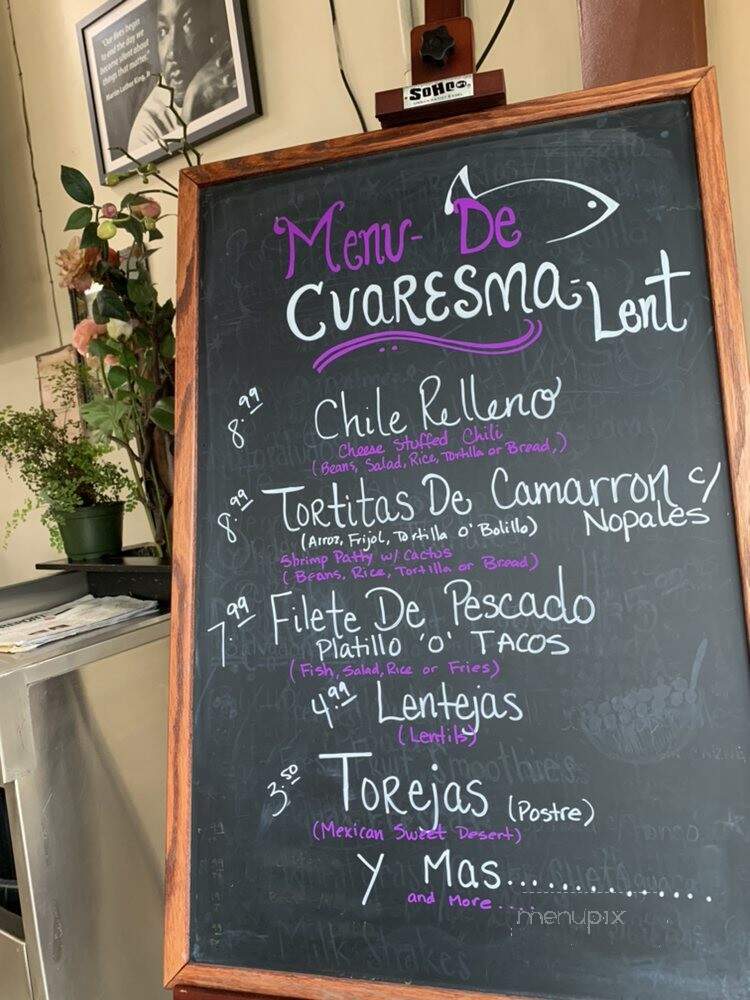 "Our lives begin
to end the day we
become silent about
things that matter."
Martin Luther King, Jr.
SoHo
URBAN ARTIST EASEL
Menu- De
CUARESMA- Lent
8.99 Chile Relleno
Cheese Stuffed Chili
(Beans, Salad, Rice, Tortilla or Bread,)
8.99 Tortitas De Camarron c/
Nopales
(Arroz, Frijol, Tortilla o' Bolillo)
Shrimp Patty w/ Cactus
(Beans, Rice, Tortilla or Bread)
7.99 Filete De Pescado
Platillo 'o' TACOS
(Fish, Salad, Rice or Fries)
4.99 Lentejas
(Lentils)
3.50 Torejas (Postre)
(Mexican Sweet Desert)
Y Mas..............
and More.....
menupix
Milk Shakes